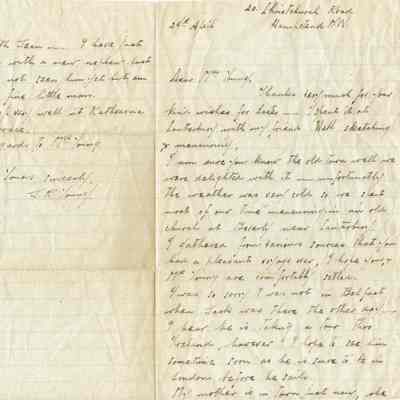 20. Christchurch Road
Hampstead N.W.
29th April
Dear Mr Young,
Thanks very much for your
kind wishes for Easter I spent it at
Canterbury with my friend Watt sketching
& measuring,
I am sure you know the old town well we
were delighted with it — unfortunately
the weather was very cold so we spent
most of our time measuring in an old
church at near Canterbury.
I gathered from various sources that you
had a pleasant voyage over, I hope you &
Mrs Young are comfortably settled.
I was so sorry I was not in Belfast
when Jack was there the other day —
I hear he is taking a tour thro
Ireland, however I hope to see him
sometime soon as he is sure to be in
London before he sails.
My mother is in town just now, she
I have just
with a new nephew but
not seen him yet but am
fine little man.
well at Katherine
to Mrs Young
Yours sincerely,
Young